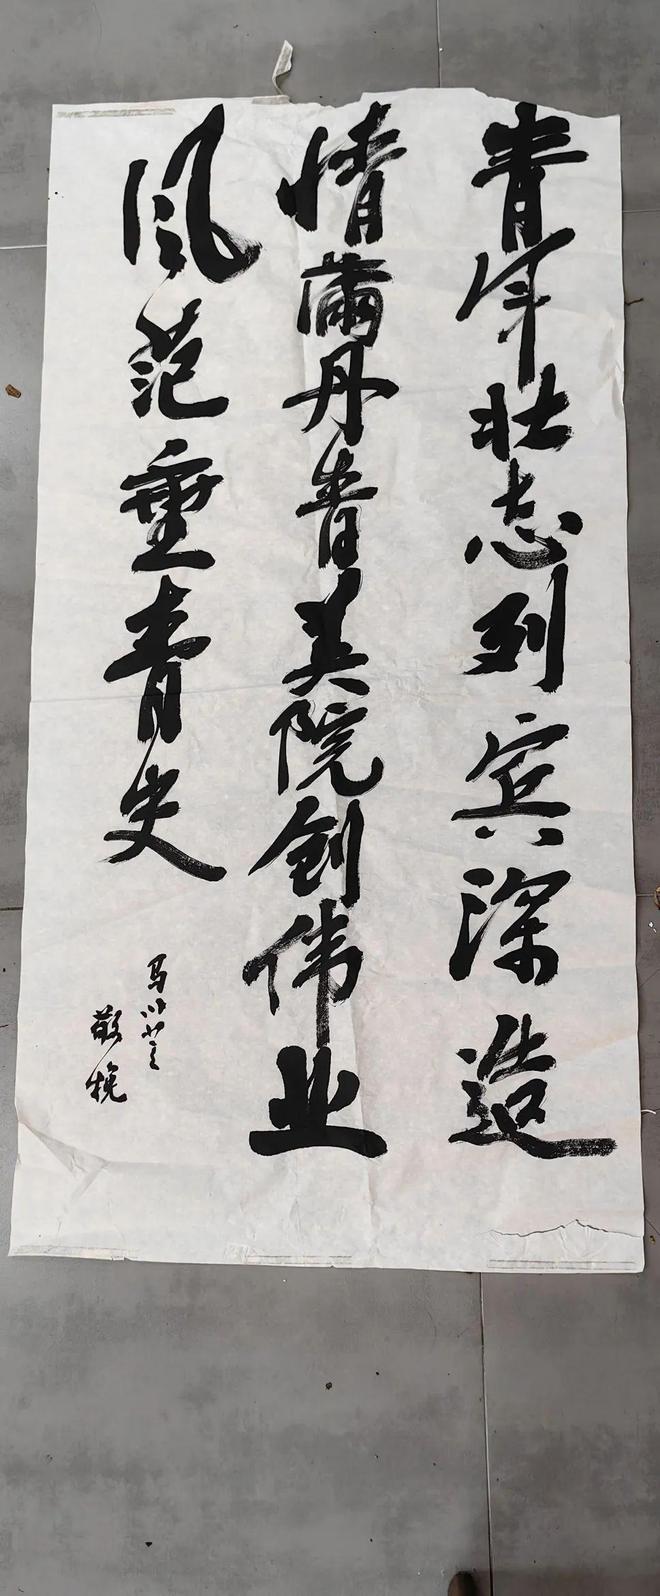 青年壮志列宾深造
情滿丹青美院创伟业
风范垂青史
马
敬挽